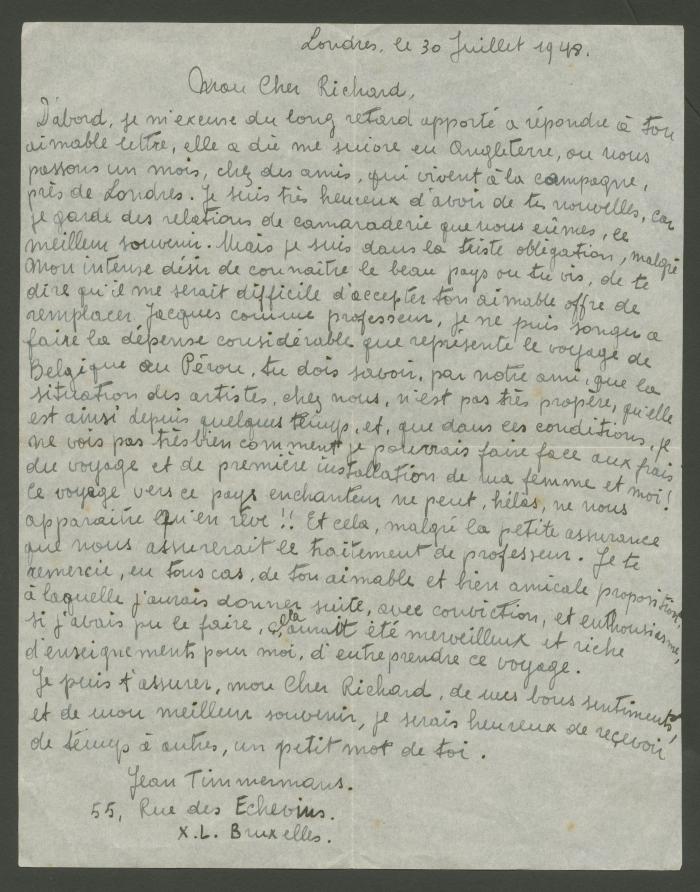 Londres, le 30 Juillet 1948.
Mon Cher Richard,
D'abord, je m'excuse du long retard apporté a répondre à ton
aimable lettre, elle a dûe me suivre en Angleterre, ou nous
passons un mois, chez des amis, qui vivent à la campagne,
près de Londres. Je suis très heureux d'avoir de tes nouvelles, car
je garde des relations de camaraderie que nous eûmes, le
meilleur souvenir. Mais je suis dans la triste obligation, malgré
mon intense désir de connaître le beau pays ou tu vis, de te
dire qu'il me serait difficile d'accepter ton aimable offre de
remplacer Jacques comme professeur, je ne puis songer a
faire la dépense considérable que représente le voyage de
Belgique au Pérou, tu dois savoir, par notre ami, que la
situation des artistes, chez nous, n'est pas très propère, qu'elle
est ainsi depuis quelques temps, et, que dans ces conditions, je
ne vois pas très bien comment je pourrais faire face aux frais
du voyage et de première installation de ma femme et moi!
Ce voyage vers ce pays enchanteur ne peut, hélas, ne nous
apparaitre qu'en rêve!! Et cela, malgré la petite assurance
que nous assurerait le traitement de professeur. Je te
remercie, en tous cas, de ton aimable et bien amicale proposition,
à laquelle j'aurais donner suite, avec conviction, et enthousiasme,
si j'avais pu le faire, cela aurait été merveilleux et riche
d'enseignements pour moi, d'entreprendre ce voyage.
Je puis t'assurer, mon Cher Richard, de mes bons sentiments,
et de mon meilleur souvenir, je serais heureux de reçevoir
de témps à autres, un petit mot de toi.
Jean Timmermans.
55, Rue des Echevins.
X.L. Bruxelles.